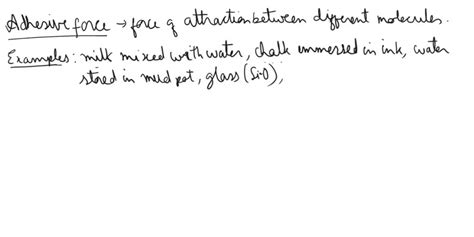 Adhesive force → force of attraction between different molecules.
Examples: milk mixed with water, chalk immersed in ink, water
stored in mud pot, glass (SiO),